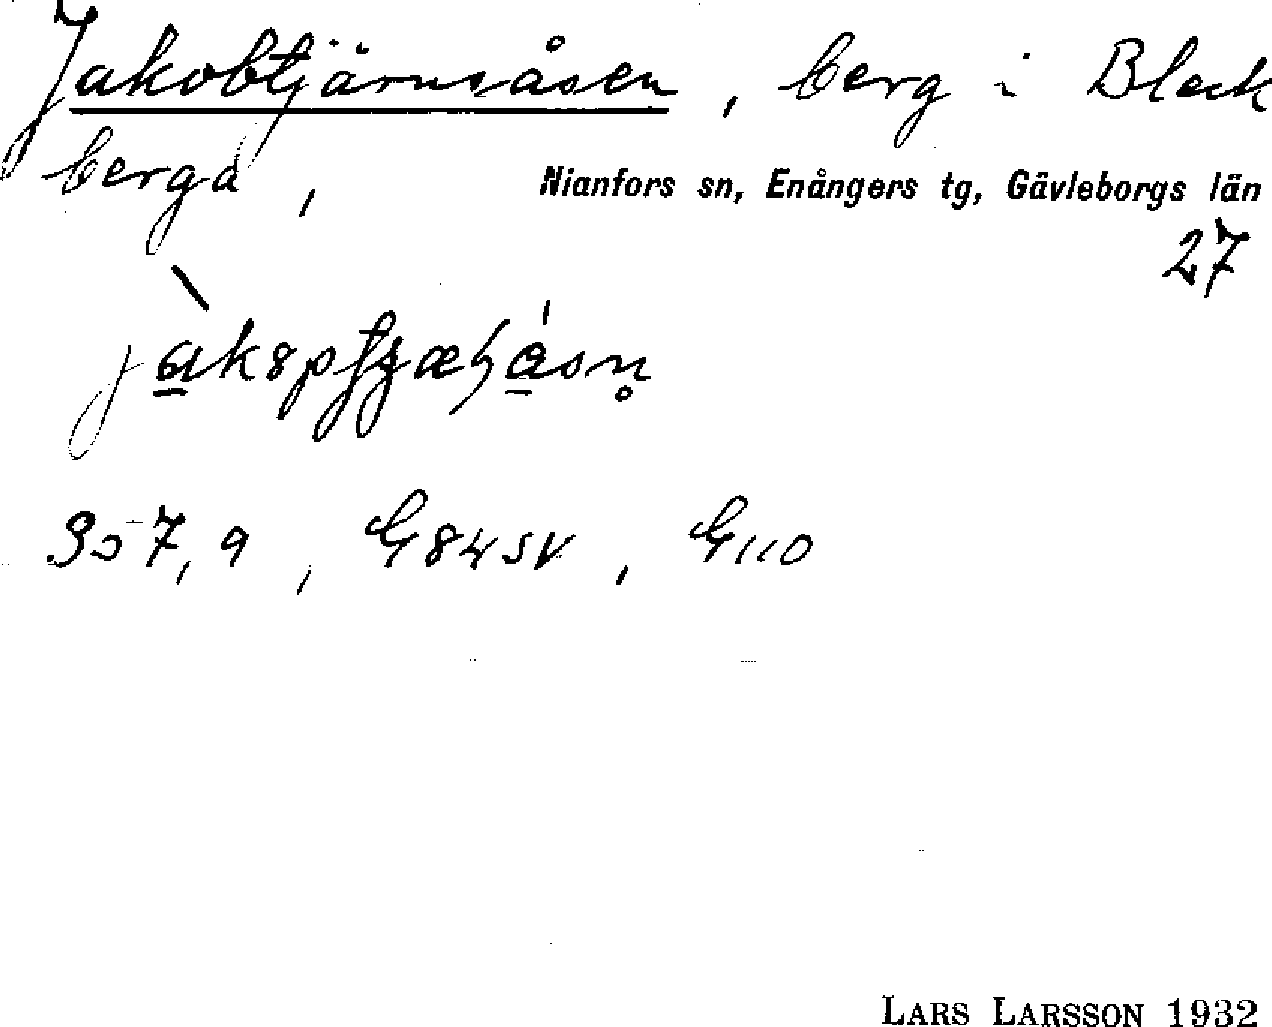 Jakobtjärnsåsen, berg i Bleck
berga,
Nianfors sn, Enångers tg, Gävleborgs län
27
357,9, G84SV, G110
LARS LARSSON 1932